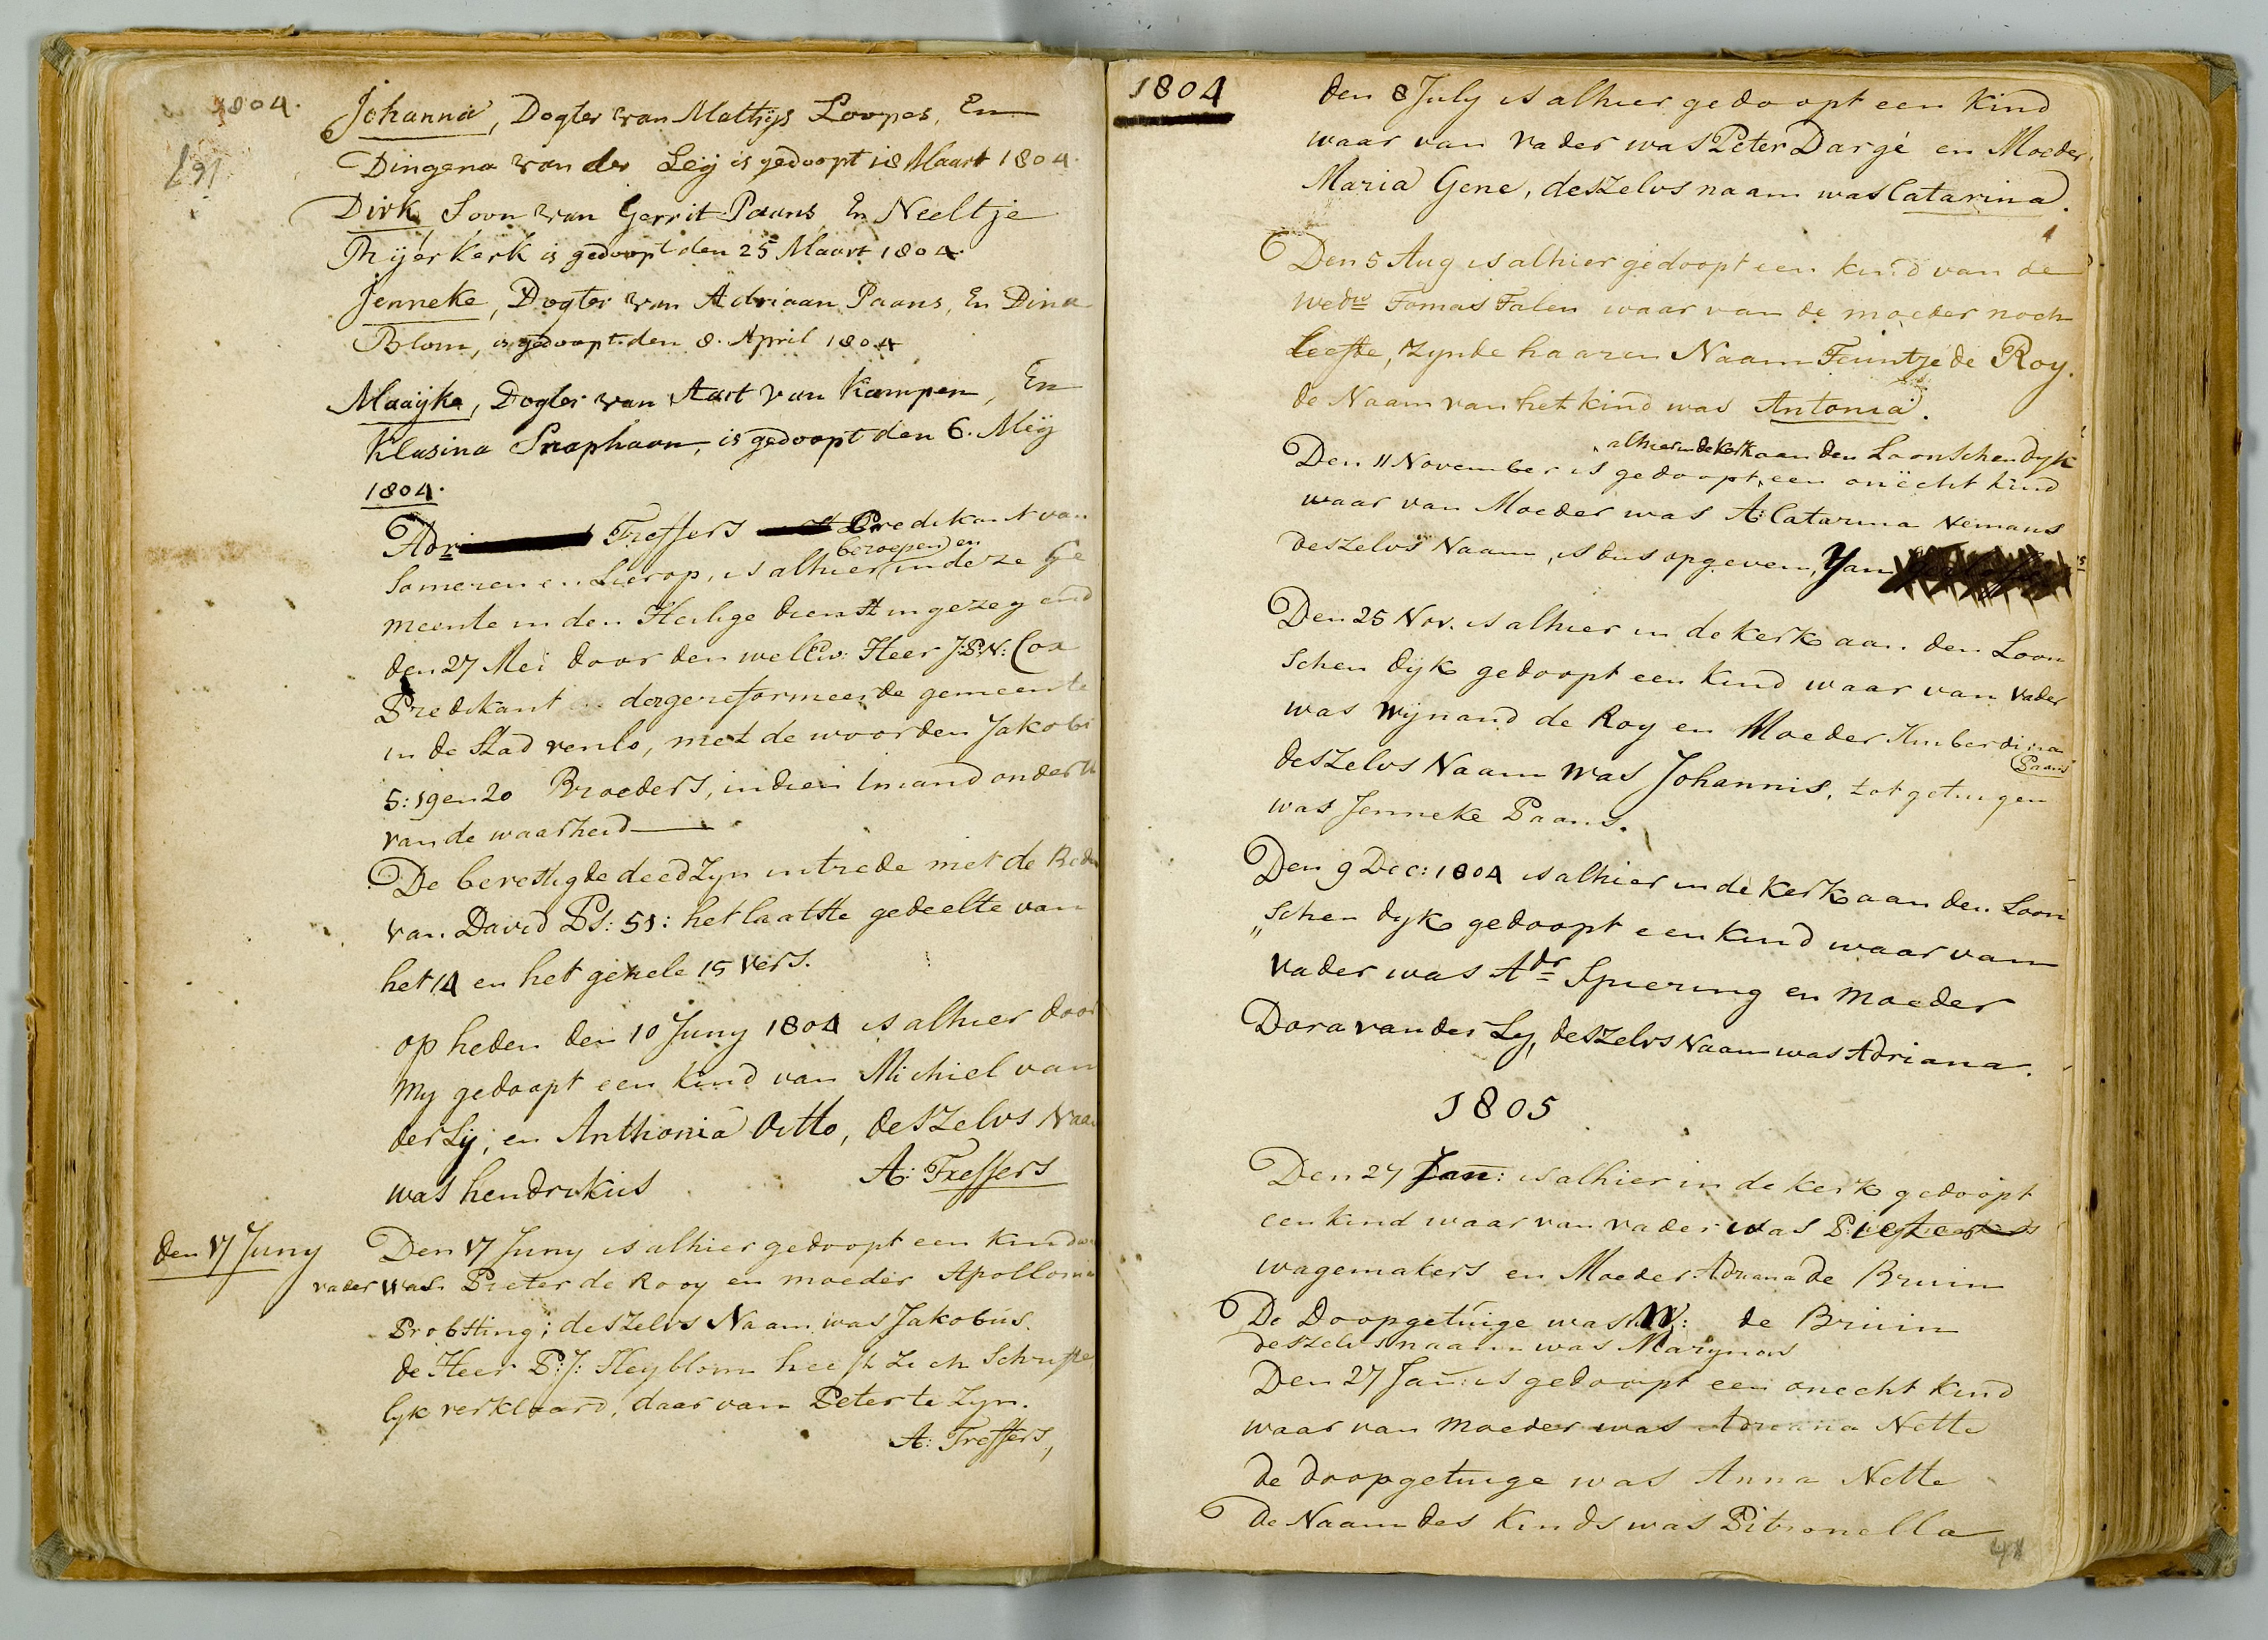 1804.
Johanna, Dogter van Mathijs Loopes, En
Dingena van der Leij is gedoopt 18 Maart 1804.
Dirk, Soon van Gerrit Paans, En Neeltje
Nijerkerk is gedoopt den 25 Maart 1804.
Jenneke, Dogter van Adriaan Paans, En Dina
Blom, is gedoopt den 8. April 1804
Maaijke, Dogter van Aart van Kampen, En
Klasina Snaphaan, is gedoopt den 6. Meij
1804.
Adr Treffers Predikant van
Someren en Lierop, is alhier beroepen en in deze Ge
meente in den Heilige dienst ingezegend
den 27 Mei door den welEw: Heer J:P:N: Cox
Predikant der gereformeerde gemeente
in de Stad venlo, met de woorden Jakobi
5: 19 en 20 Broeders, indien imand onder u
van de waarheid
De bevestigde deed zyn intrede met de Rede
van David Ps: 51: het laatste gedeelte van
het 14 en het gehele 15 vers.
op heden den 10 Juny 1804 is alhier door
my gedoopt een kind van Michiel van
der Ly; en Anthonia Ditto, deszelvs Naam
was hendrikus A: Treffers
den 17 Juny Den 17 Juny is alhier gedoopt een kind
vader was Pieter de Rooy en moeder Apollonia
Probsting; deszelvs Naam was Jakobus.
de Heer P:J: Heyblom heeft zich Schrifte
lyk verklaard, daar van Peter te zyn.
A: Treffers,
1804
den 8 July is alhier gedoopt een kind
waar van vader was Peter Dargé en Moeder
Maria Gene, deszelvs naam was Catarina.
Den 5 Aug is alhier gedoopt een kind van de
wedw Tomas Talen waar van de moeder noch
leefde, zynde haaren Naam Teuntje de Roy.
de Naam van het kind was Antonia.
alhier in de kerk aan den Loonschen dyk
Den 11 November is gedoopt, een onëcht kind
waar van Moeder was A: Catarina Nemans
deszelvs Naam, is dus opgeven, Yan
Den 25 Nov. is alhier in de kerk aan den Loon
schen dijk gedoopt een kind waar van vader
was Wynand de Roy en Moeder Huiberdina
Paans
deszelvs Naam was Johannis, tot getuigen
was Jenneke Paans.
Den 9 Dec: 1804 is alhier in de kerk aan den Loon
„schen dyk gedoopt een kind waar van
vader was Adr Spiering en moeder
Dora van der Ly, deszelvs Naam was Adriana.
1805
Den 27 Jan: is alhier in de kerk gedoopt
een kind waar van vader was
wagemakers en Moeder Adriana de Bruin
De Doopgetuige was W: de Bruin
deszelvs naam was Marynus
Den 27 Jan: is gedoopt een onecht kind
waar van moeder was Adriana Nette
de doopgetuige was Anna Nette
de Naam des kinds was Pitronella
41